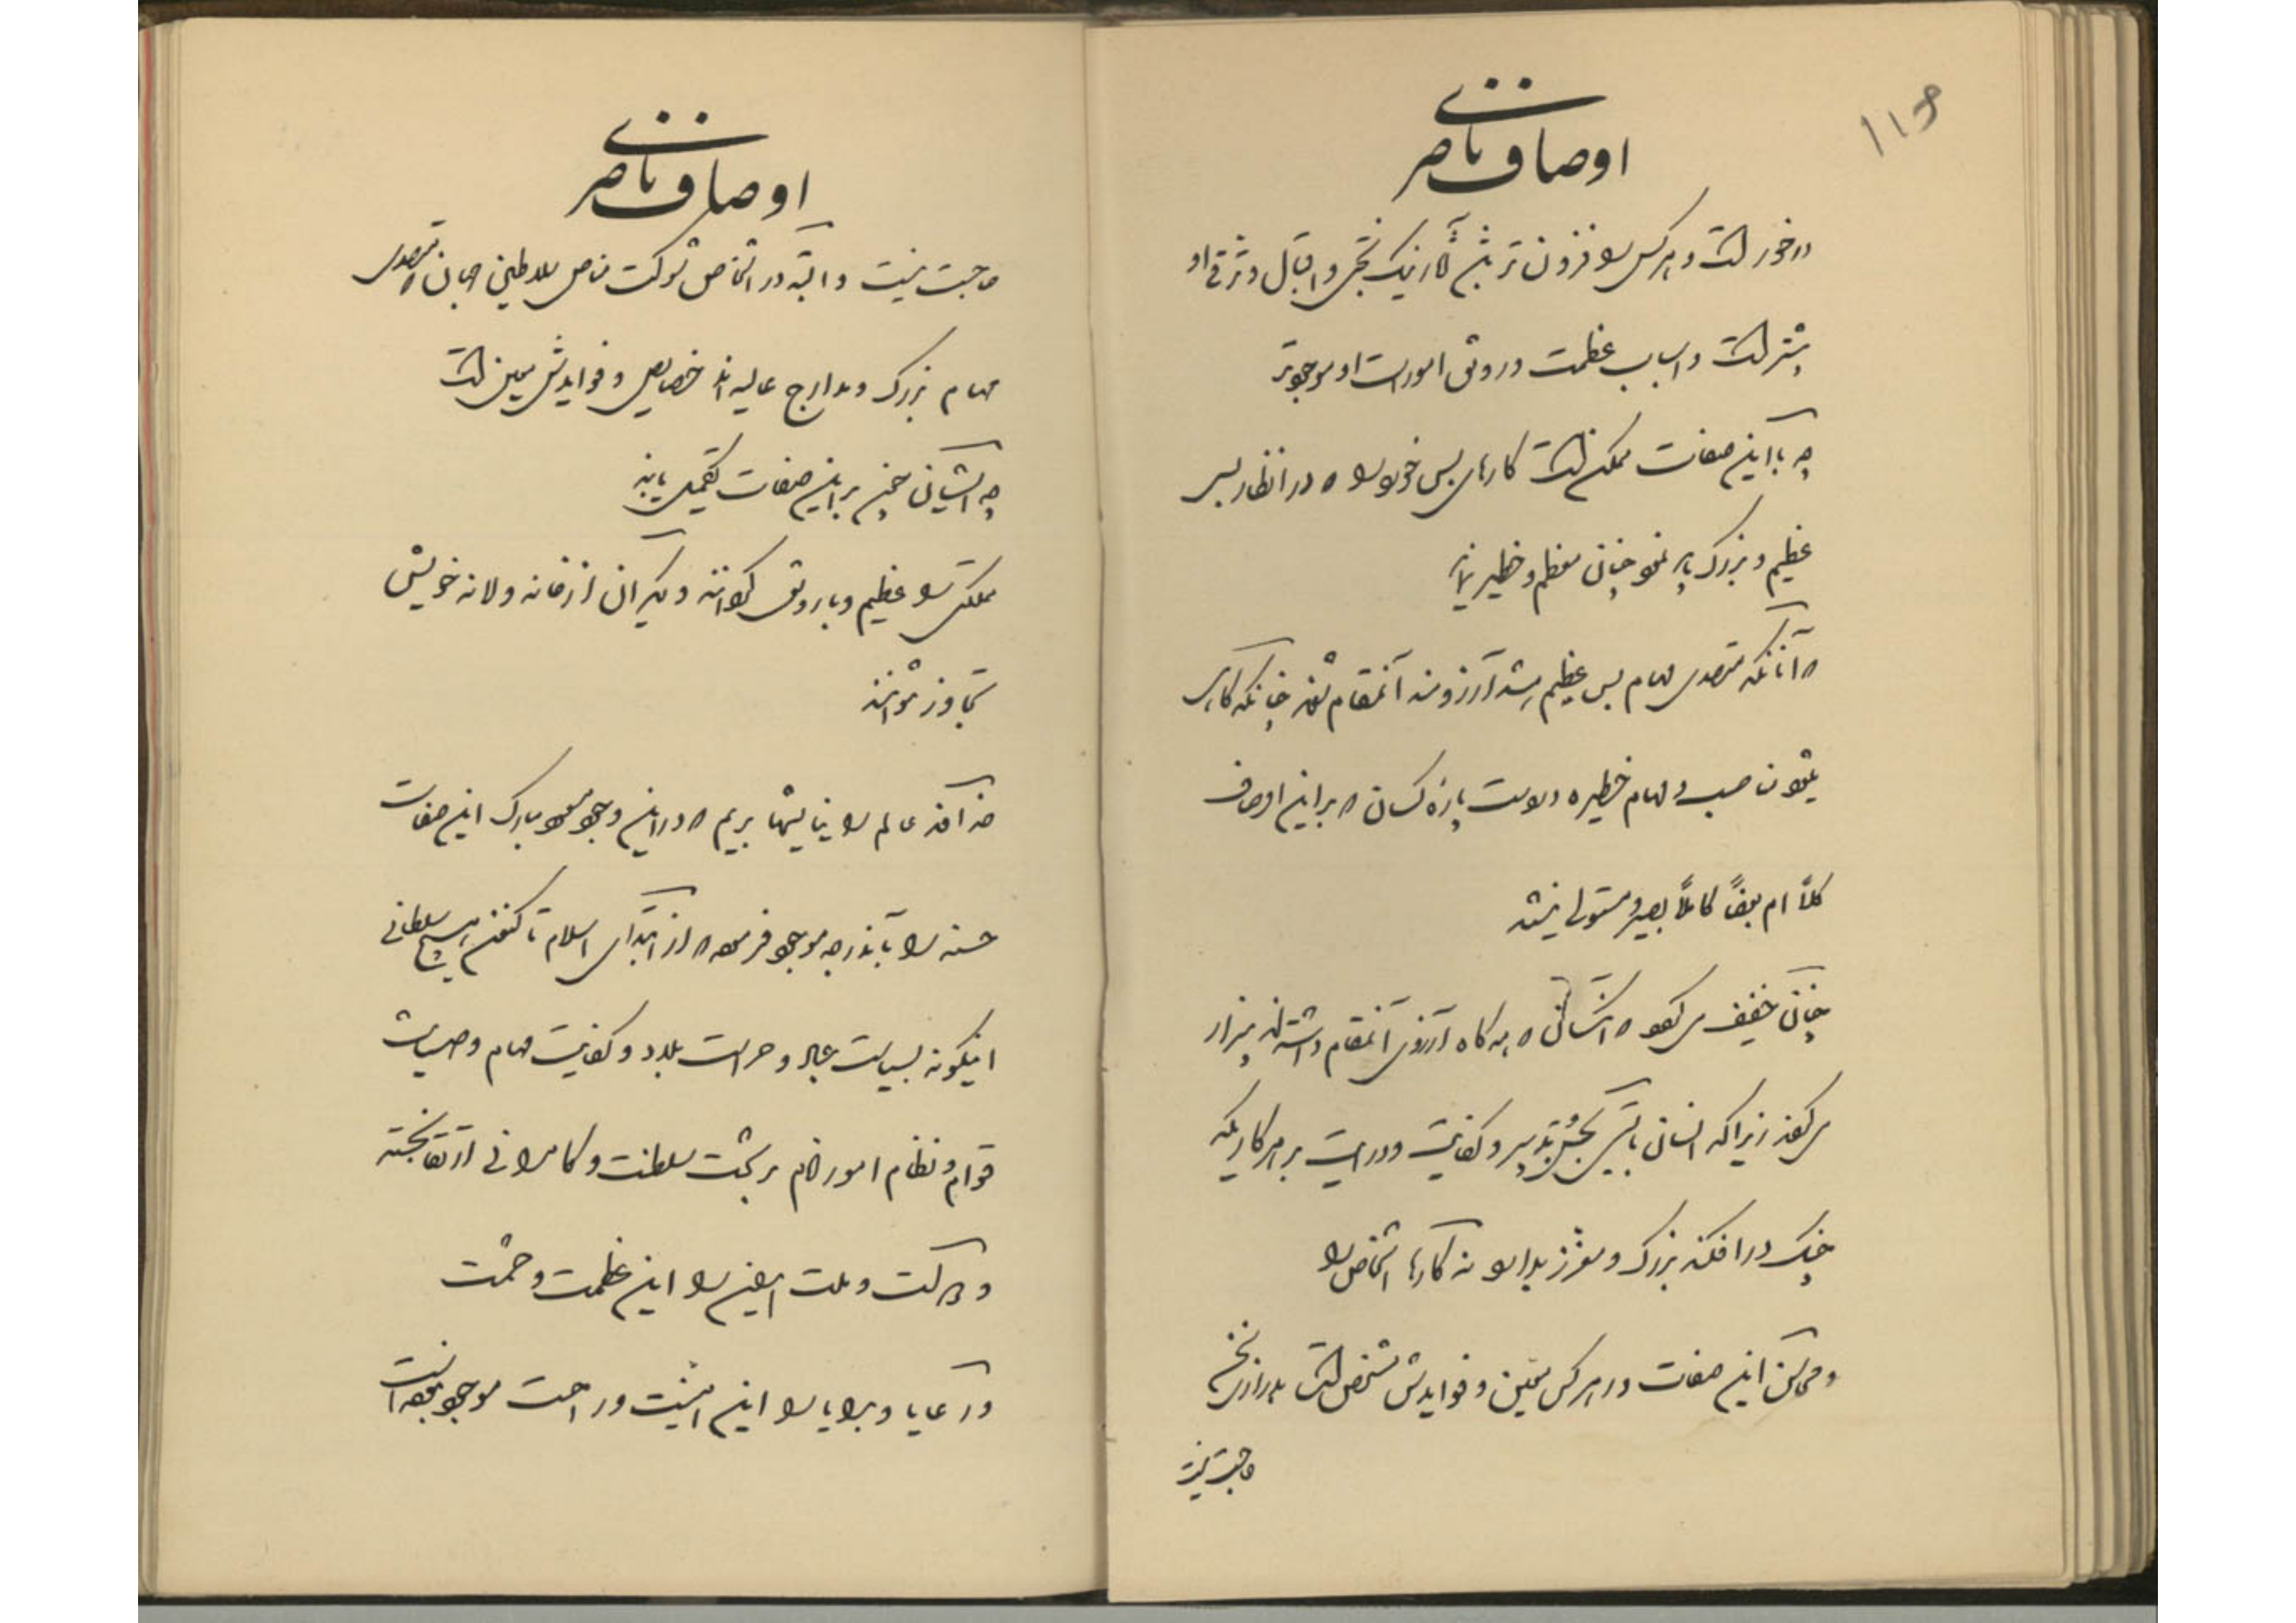 اوصاف ناصری
در خور است و هر کس را فزون تر بخشد آثار نیک بختی و اقبال و ترقی او
بیشتر است و اسباب عظمت و رونق امورات او موجودتر
چه با این صفات ممکن است کارهای بس خورد را که در انظار بس
عظیم و بزرگ پایه نمود چنان معظم و خطیر
که آنانکه متصدی مهام بس عظیم باشند آرزومند آنمقام شوند چنانکه کارهای
مناصب و مهام خطیره در دست پاره کسان که بر این اوصاف
کلاً ام بعضاً کاملاً بصیر و مستولی نیستند
چنان خفیف می شود که اشخاصی که همه گاه آرزوی آنمقام داشته اند بیزار
می شوند زیرا که انسانی بایستی بحسن تدبیر و کفایت و درایت بر هر کاریکه
چنگ در افکند بزرگ و معزز بدارد نه کارها اشخاص را
و محاسن این صفات در هر کس معین و فوایدش مشخص است بدرازی سخن
حاجت نیست
اوصاف ناصری
حاجت نیست و البته در اشخاص شوکت خاص سلاطین جهان که متصدی
مهام بزرگ و مدارج عالیه اند خصایص و فوایدش معین است
چه ایشان چون بر این صفات تکمیل یابند
مملکتی را عظیم و با رونق کنند و دیگران از خانه و لانه خویش
تجاوز نتوانند
خداوند عالم را نیایشها بریم که در این وجود مسعود مبارک این صفات
حسنه را بآندرجه موجود فرموده که از ابتدای اسلام تا کنون هیچ سلطانی
اینگونه بسیاست عباد و حراست بلاد و کفایت مهام و صیانت
قوام و نظام امور انام بر تخت سلطنت و کامرانی ارتقا نجسته
و مملکت و ملت ایران را این عظمت و حشمت
و رعایا و برایا را این امنیت و راحت موجود نبوده است